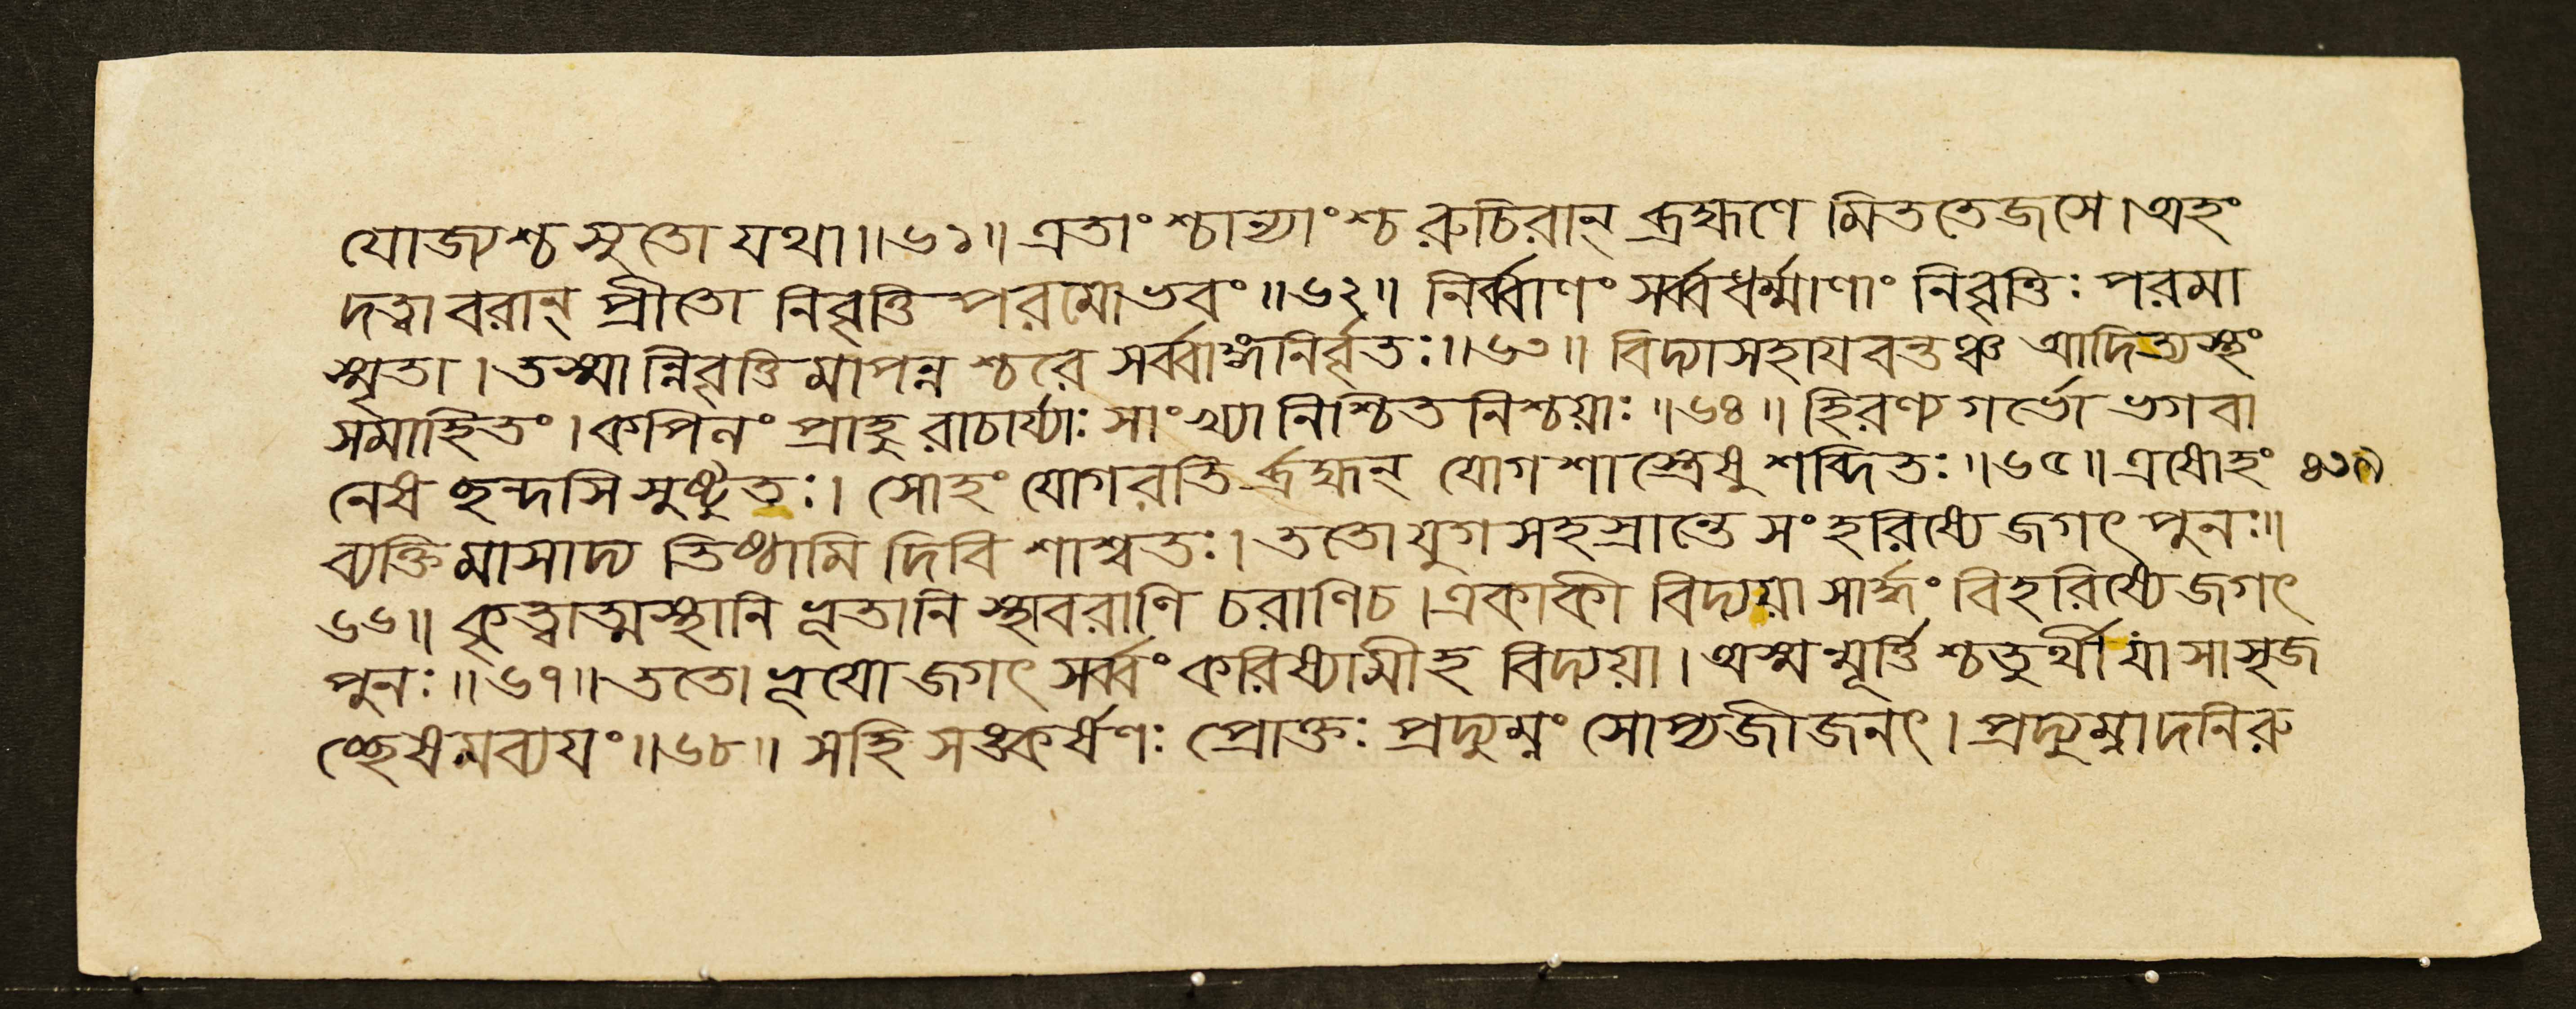 যোজ্যশ্চ সুতো যথা॥৬১॥ এতাংশ্চান্যাংশ্চ রুচিরান্ ব্রহ্মণে মিততেজসে। অহং
দত্বা বরান্ প্রীতো নিবৃত্তি পরমোভবং॥৬২॥ নির্ব্বাণং সর্ব্বধর্ম্মাণাং নিবৃত্তিঃ পরমা
স্মৃতা। তস্মান্নিবৃত্তিমাপন্নশ্চরে সর্ব্বাঙ্গনির্বৃতঃ॥৬৩॥ বিদ্যাসহাযবন্তঞ্চ আদিত্যস্থং
সমাহিতং। কপিলং প্রাহুরাচার্য্যাঃ সাংখ্যা নিশ্চিত নিশ্চয়াঃ॥৬৪॥ হিরণ্যগর্ভো ভগবা
নেষ ছন্দসি সুষ্টুতঃ। সোহং যোগরতি র্ব্রহ্মন্ যোগশাস্ত্রেষু শব্দিতঃ॥৬৫॥ এষোহং
ব্যক্তিমাসাদ্য তিষ্ঠামি দিবি শাশ্বতঃ। ততো যুগসহস্রান্তে সংহরিষ্যে জগৎ পুনঃ॥
৬৬॥ কৃত্বাত্মস্থানি ভূতানি স্থাবরাণি চরাণিচ। একাকী বিদ্যয়া সার্দ্ধং বিহরিষ্যে জগৎ
পুনঃ॥৬৭॥ ততো ভূযো জগৎ সর্ব্বং করিষ্যামীহ বিদ্যয়া। অস্মন্মূর্ত্তিশ্চতুর্থী যা সাসৃজ
চ্ছেষমব্যযং॥৬৮॥ সহি সঙ্কর্ষণঃ প্রোক্তঃ প্রদ্যুম্নং সোপ্যজীজনৎ। প্রদ্যুম্নাদনিরু